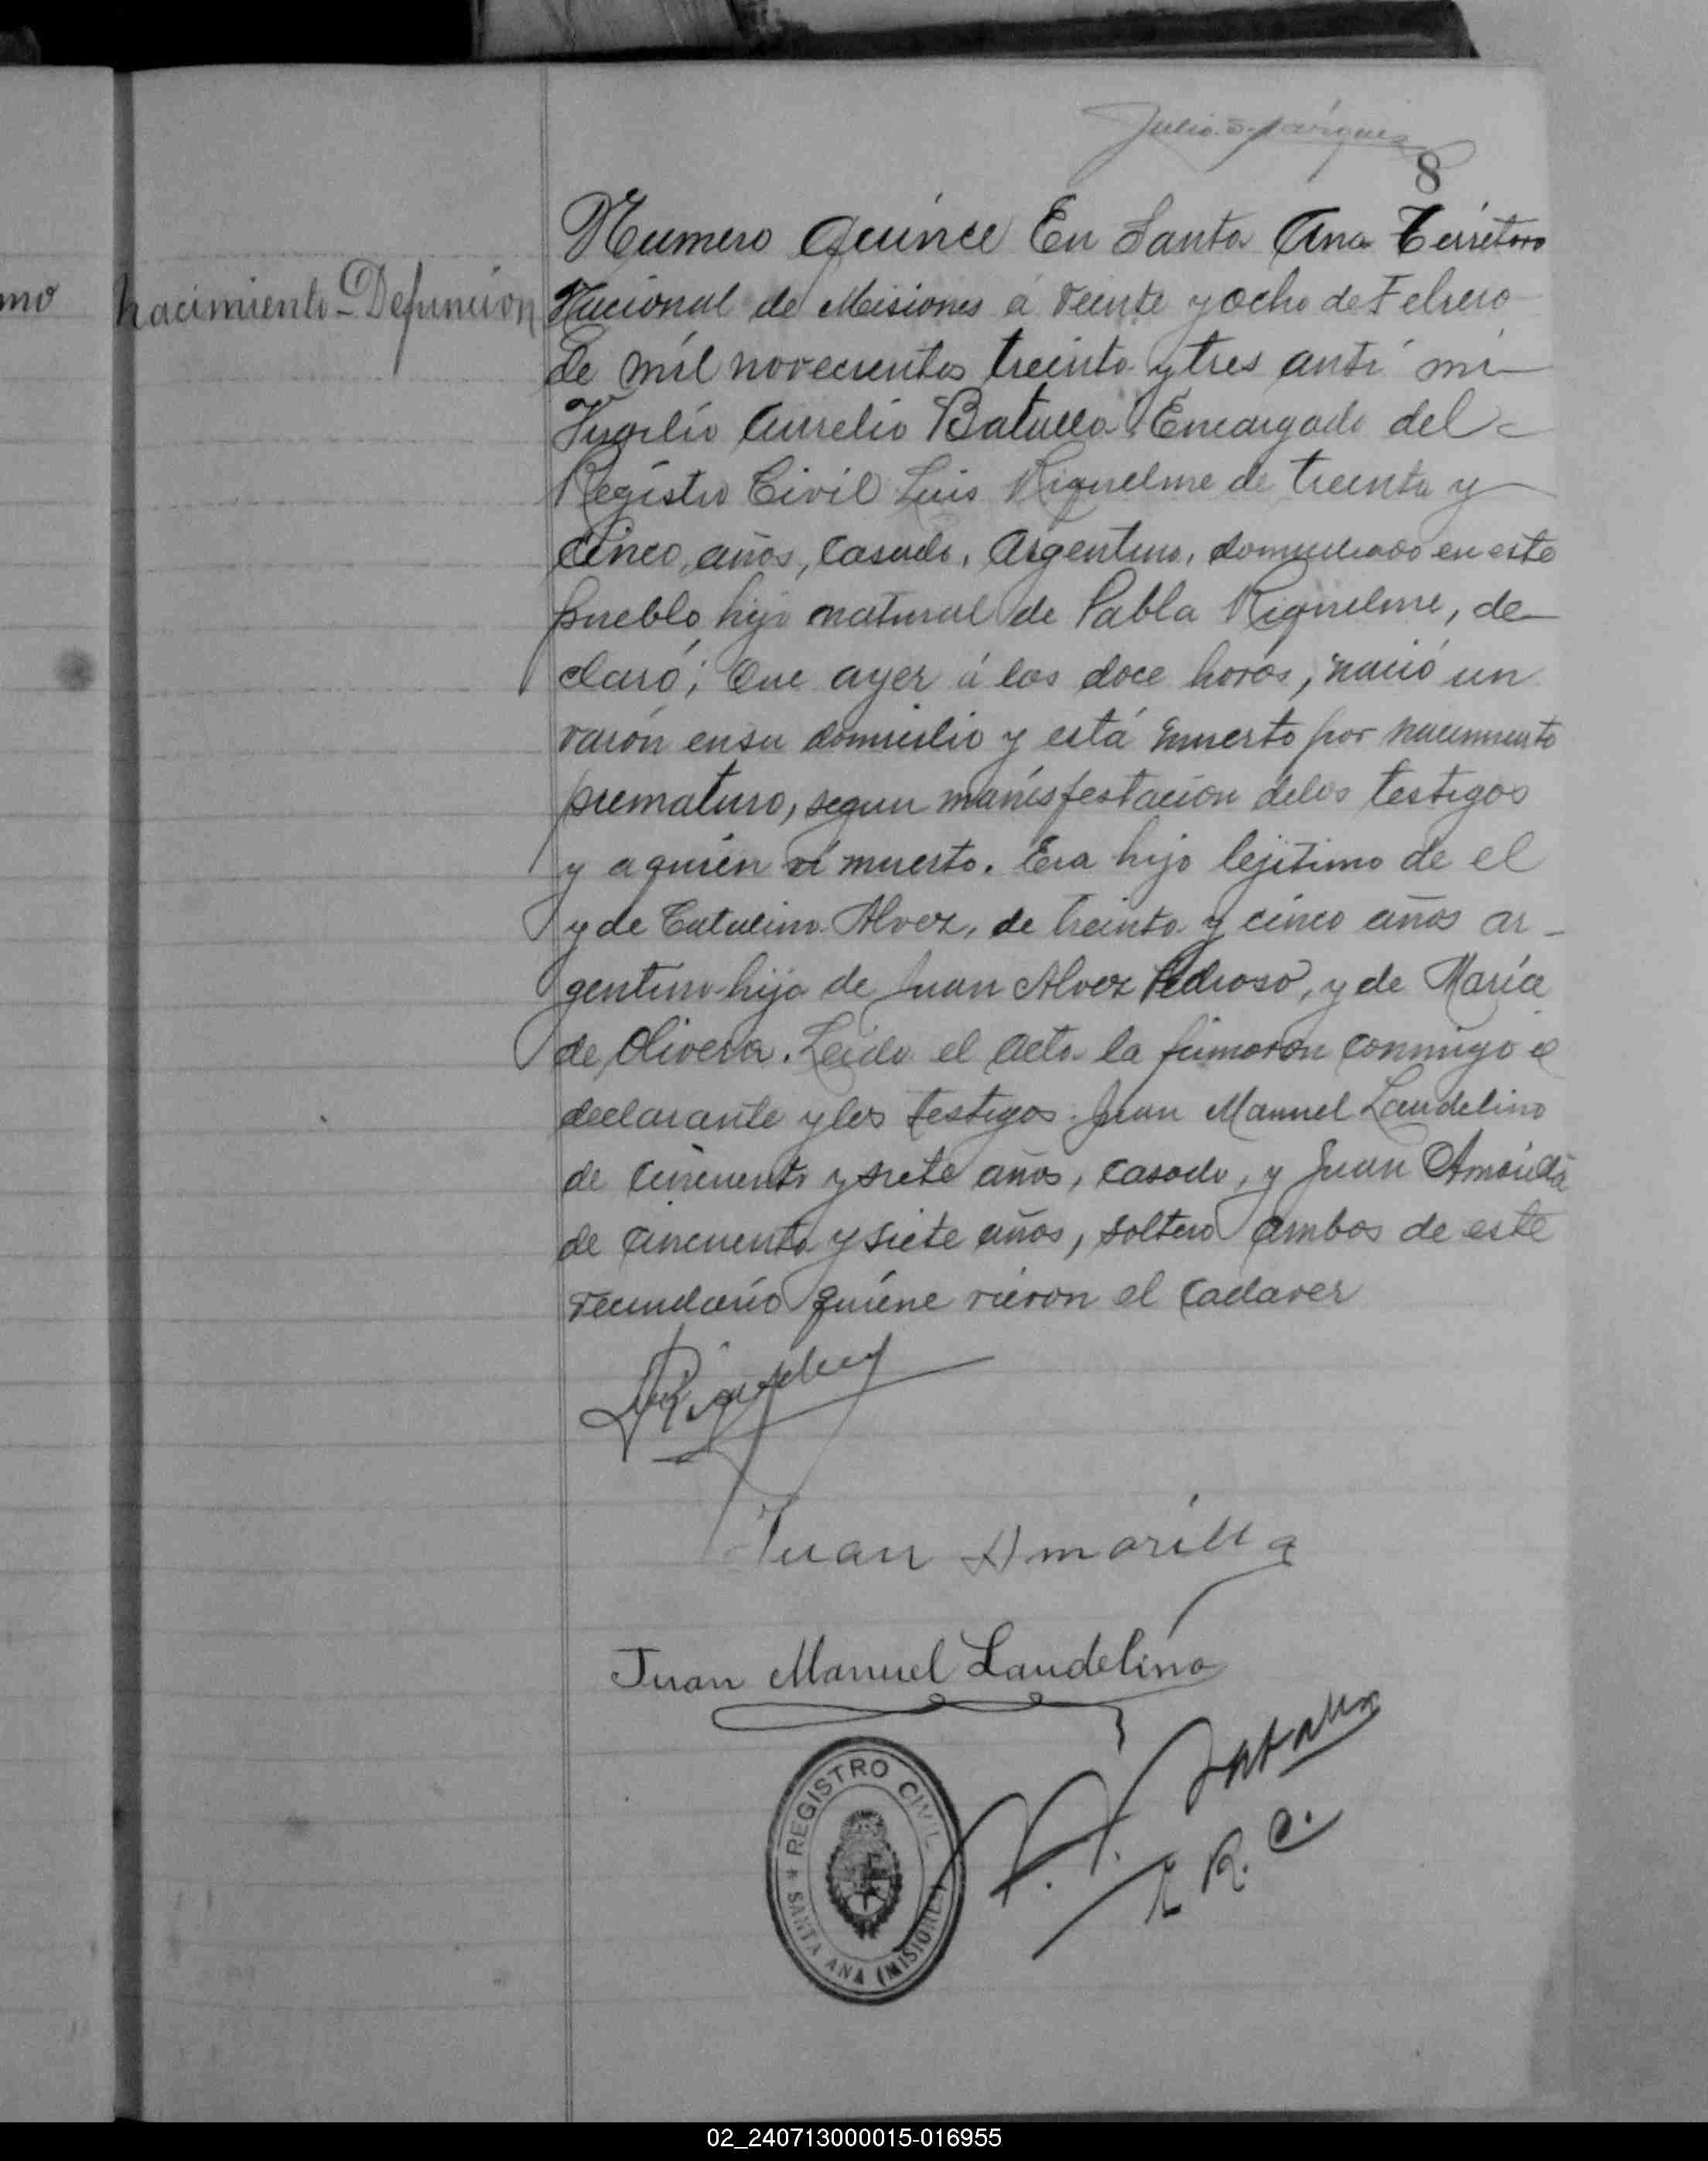 8
Numero Quince En Santa Ana Territoro
mo
nacimiento - Defuncion
Nacional de Misiones á veinte y ocho de Febrero
de mil novecientos treinta y tres anti mi
Virgilio Aurelio Batalla Encargado del
Registro Civil Luis Riquelme de treinta y
cinco, años, casado, Argentino, domiciliado en este
pueblo, hijo natural de Pabla Riquelme, de
claró; Que ayer á las doce horas, nació un
varón en su domicilio y está muerto por nacimiento
prematuro, segun manisfestacion delos testigos
y a quien vi muerto. Era hijo lejitimo de el
y de Catalina Alvez, de treinta y cinco años ar-
gentina hija de Juan Alvez Pedroso, y de María
de Olivera. Leida el acta la firmaron conmigo el
declarante y los testigos Juan Manuel Laudelino
de cincuenta y siete años, casado, y Juan Amarilla
de cincuenta y siete años, soltero ambos de este
vecindario quiene vieron el cadaver
Juan Amarilla
Juan Manuel Laudelino
REGISTRO CIVIL
SANTA ANA (MISIONES)
E. R. C.
02_240713000015-016955